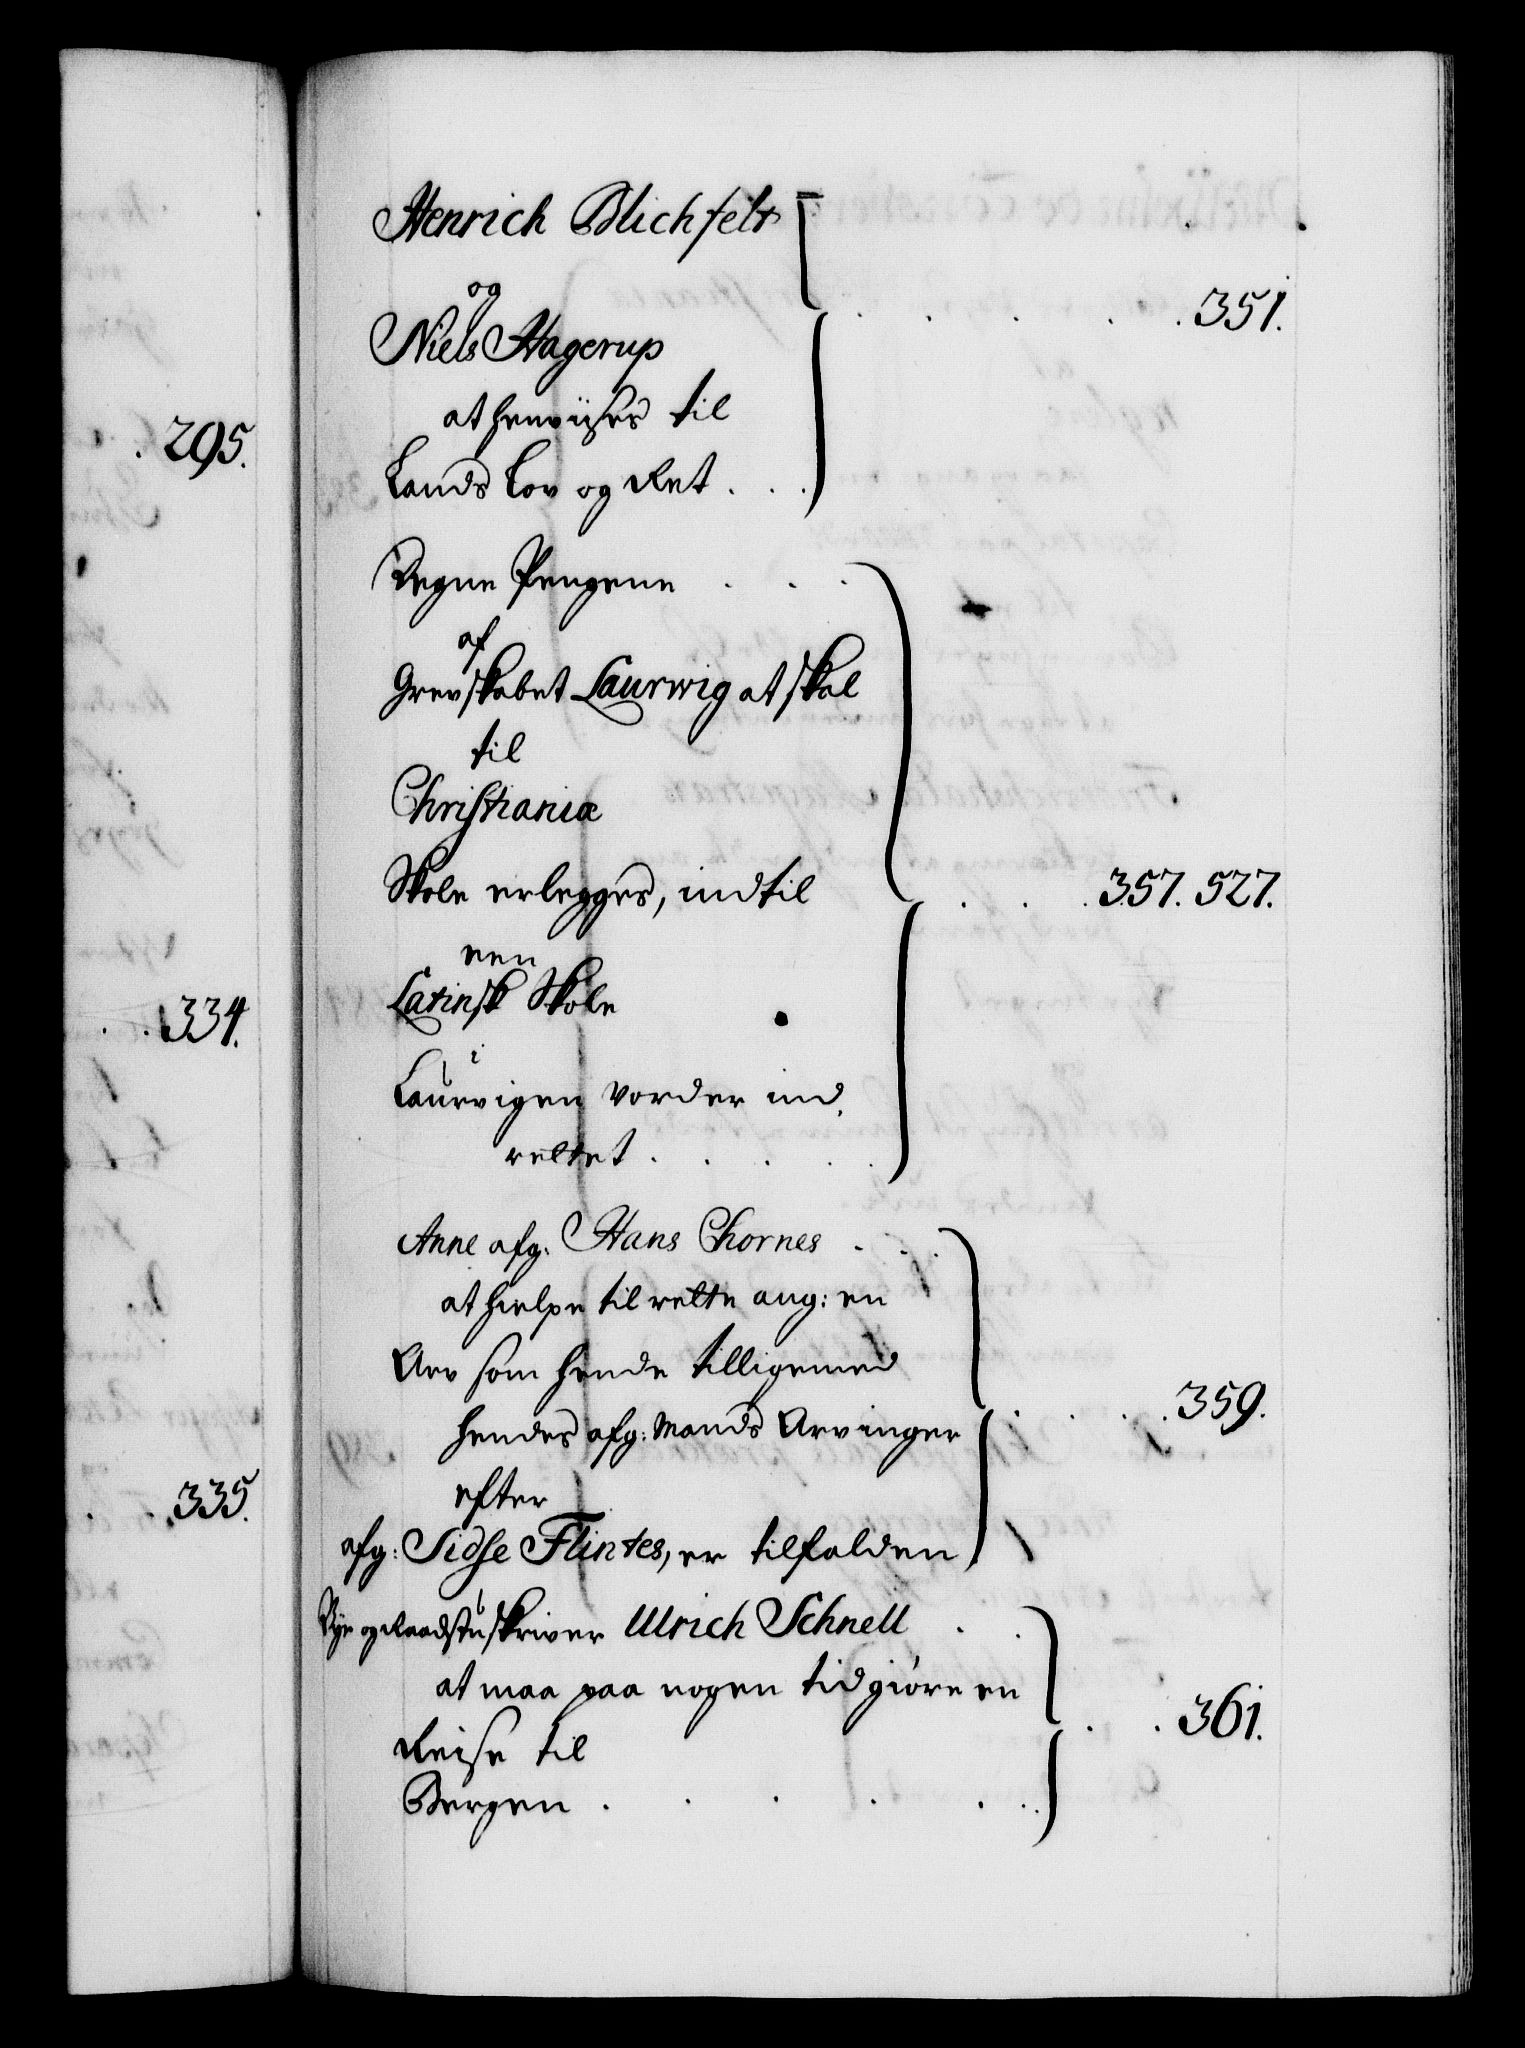 295.
334.
335.
Henrich Blichfelt
og
Niels Hagerup
at henviises til
Lands Lov og Ret . . .
351.
Degne Pengene . . .
af
Grevskabet Laurwig at skal
til
Christiania
Skole erlegges, indtil
een
Latinsk Skole
i
Laurvigen vorder ind
rettet . . . . .
357. 527.
Anne afg: Hans Thornes . . .
at hielpe til rette ang: en
Arv som hende tilligemed
hendes afg: Mands Arvinger
efter
afg: Sidse Flintes, er tilfalden
359.
Bye og Raadstuskriver Ulrich Schnell . .
at maa paa nogen tid giøre en
Reise til
Bergen . . . . . .
361.